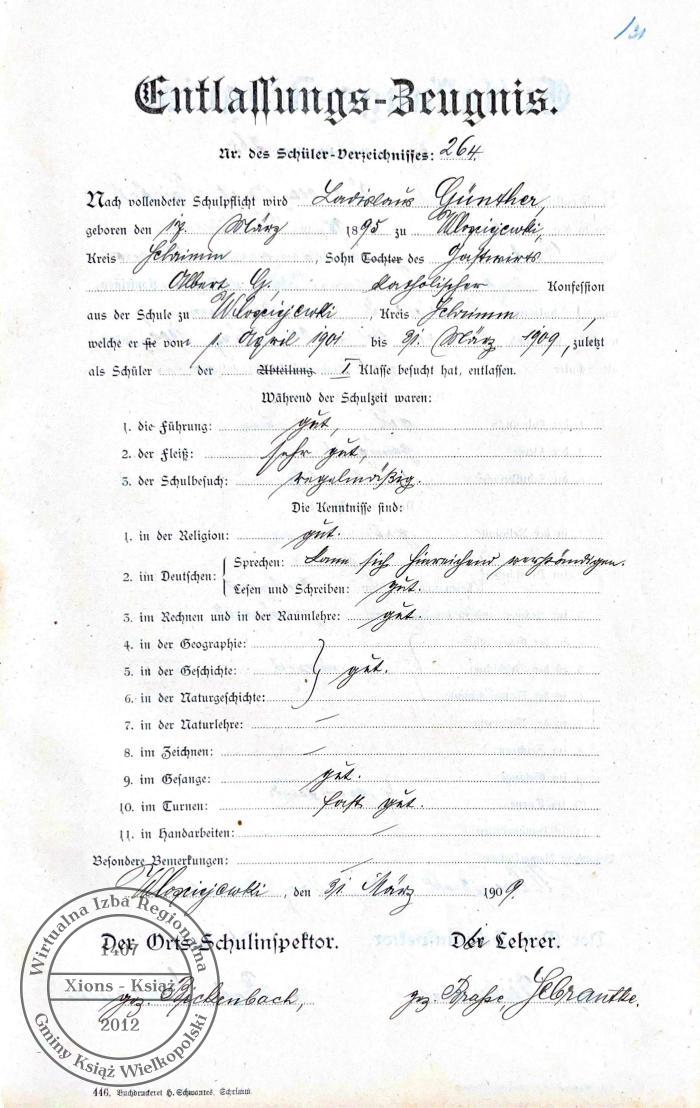 131
Entlassungs-Zeugnis.
Nr. des Schüler-Verzeichnisses: 264.
Nach vollendeter Schulpflicht wird Ladislaus Günther,
geboren den 17. März 1895 zu Wlosciejewki,
Kreis Schrimm, Sohn Tochter des Gastwirts
Albert G., katholischer Konfession
aus der Schule zu Wlosciejewki, Kreis Schrimm,
welche er sie vom 1. April 1901 bis 31. März 1909, zuletzt
als Schüler der Abteilung I Klasse besucht hat, entlassen.
Während der Schulzeit waren:
1. die Führung: gut,
2. der Fleiß: sehr gut,
3. der Schulbesuch: regelmäßig.
Die Kenntnisse sind:
1. in der Religion: gut.
2. im Deutschen: Sprechen: kann sich hinreichend verständigen.
Lesen und Schreiben: gut.
3. im Rechnen und in der Raumlehre: gut.
4. in der Geographie:
5. in der Geschichte: gut.
6. in der Naturgeschichte:
7. in der Naturlehre: —
8. im Zeichnen: —
9. im Gesange: gut.
10. im Turnen: fast gut.
11. in Handarbeiten: —
Besondere Bemerkungen: —
Wlosciejewki, den 31 März 1909.
Der Orts-Schulinspektor. Der Lehrer.
gez. Reckenbach, gez.
Wirtualna Izba Regionalna
1407
Xions - Książ
2012
Gminy Książ Wielkopolski
446. Buchdruckerei H. Schwantes, Schrimm